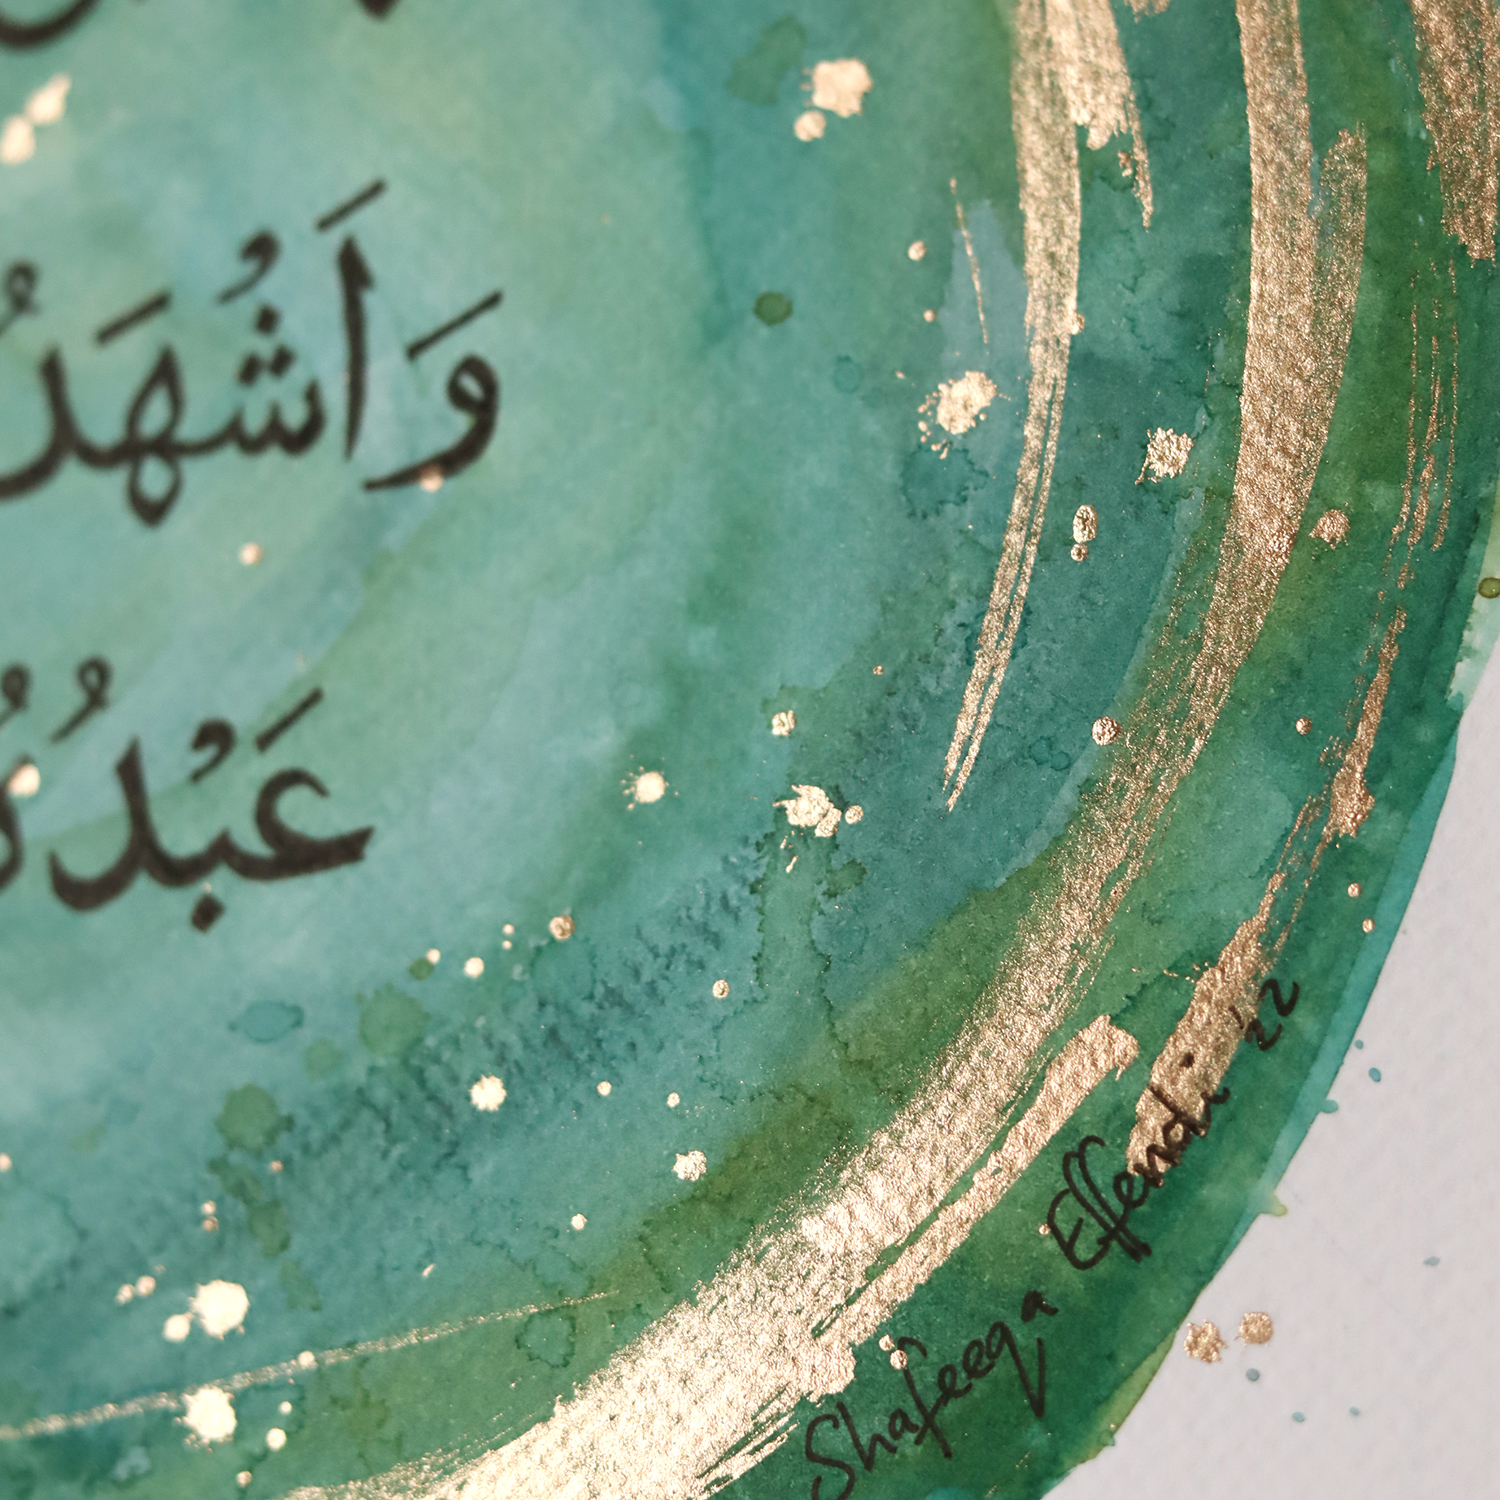 وَأَشْهَدُ
عَبْدُهُ
Shafeeqa Effendi '22